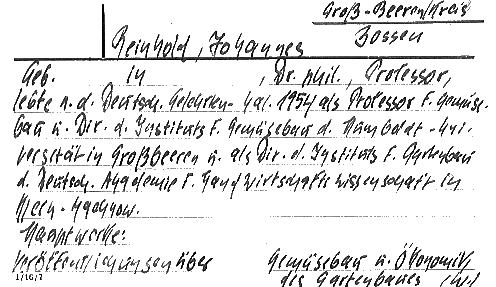 Groß-Beeren/Kreis
Reinhold, Johannes
Bossen
Geb. in , Dr. phil., Professor,
lebte n. d. Deutsch. Gelehrten-Kal. 1954 als Professor f. Gemüse-
bau u. Dir. d. Instituts f. Gemüsebau d. Humboldt-Uni-
versität in Großbeeren u. als Dir. d. Instituts f. Gartenbau
d. Deutsch. Akademie f. Landwirtschaftswissenschaft in
Hauptwerke:
Veröffentlichungen über Gemüsebau u. Ökonomik
des Gartenbaues
1/16/7